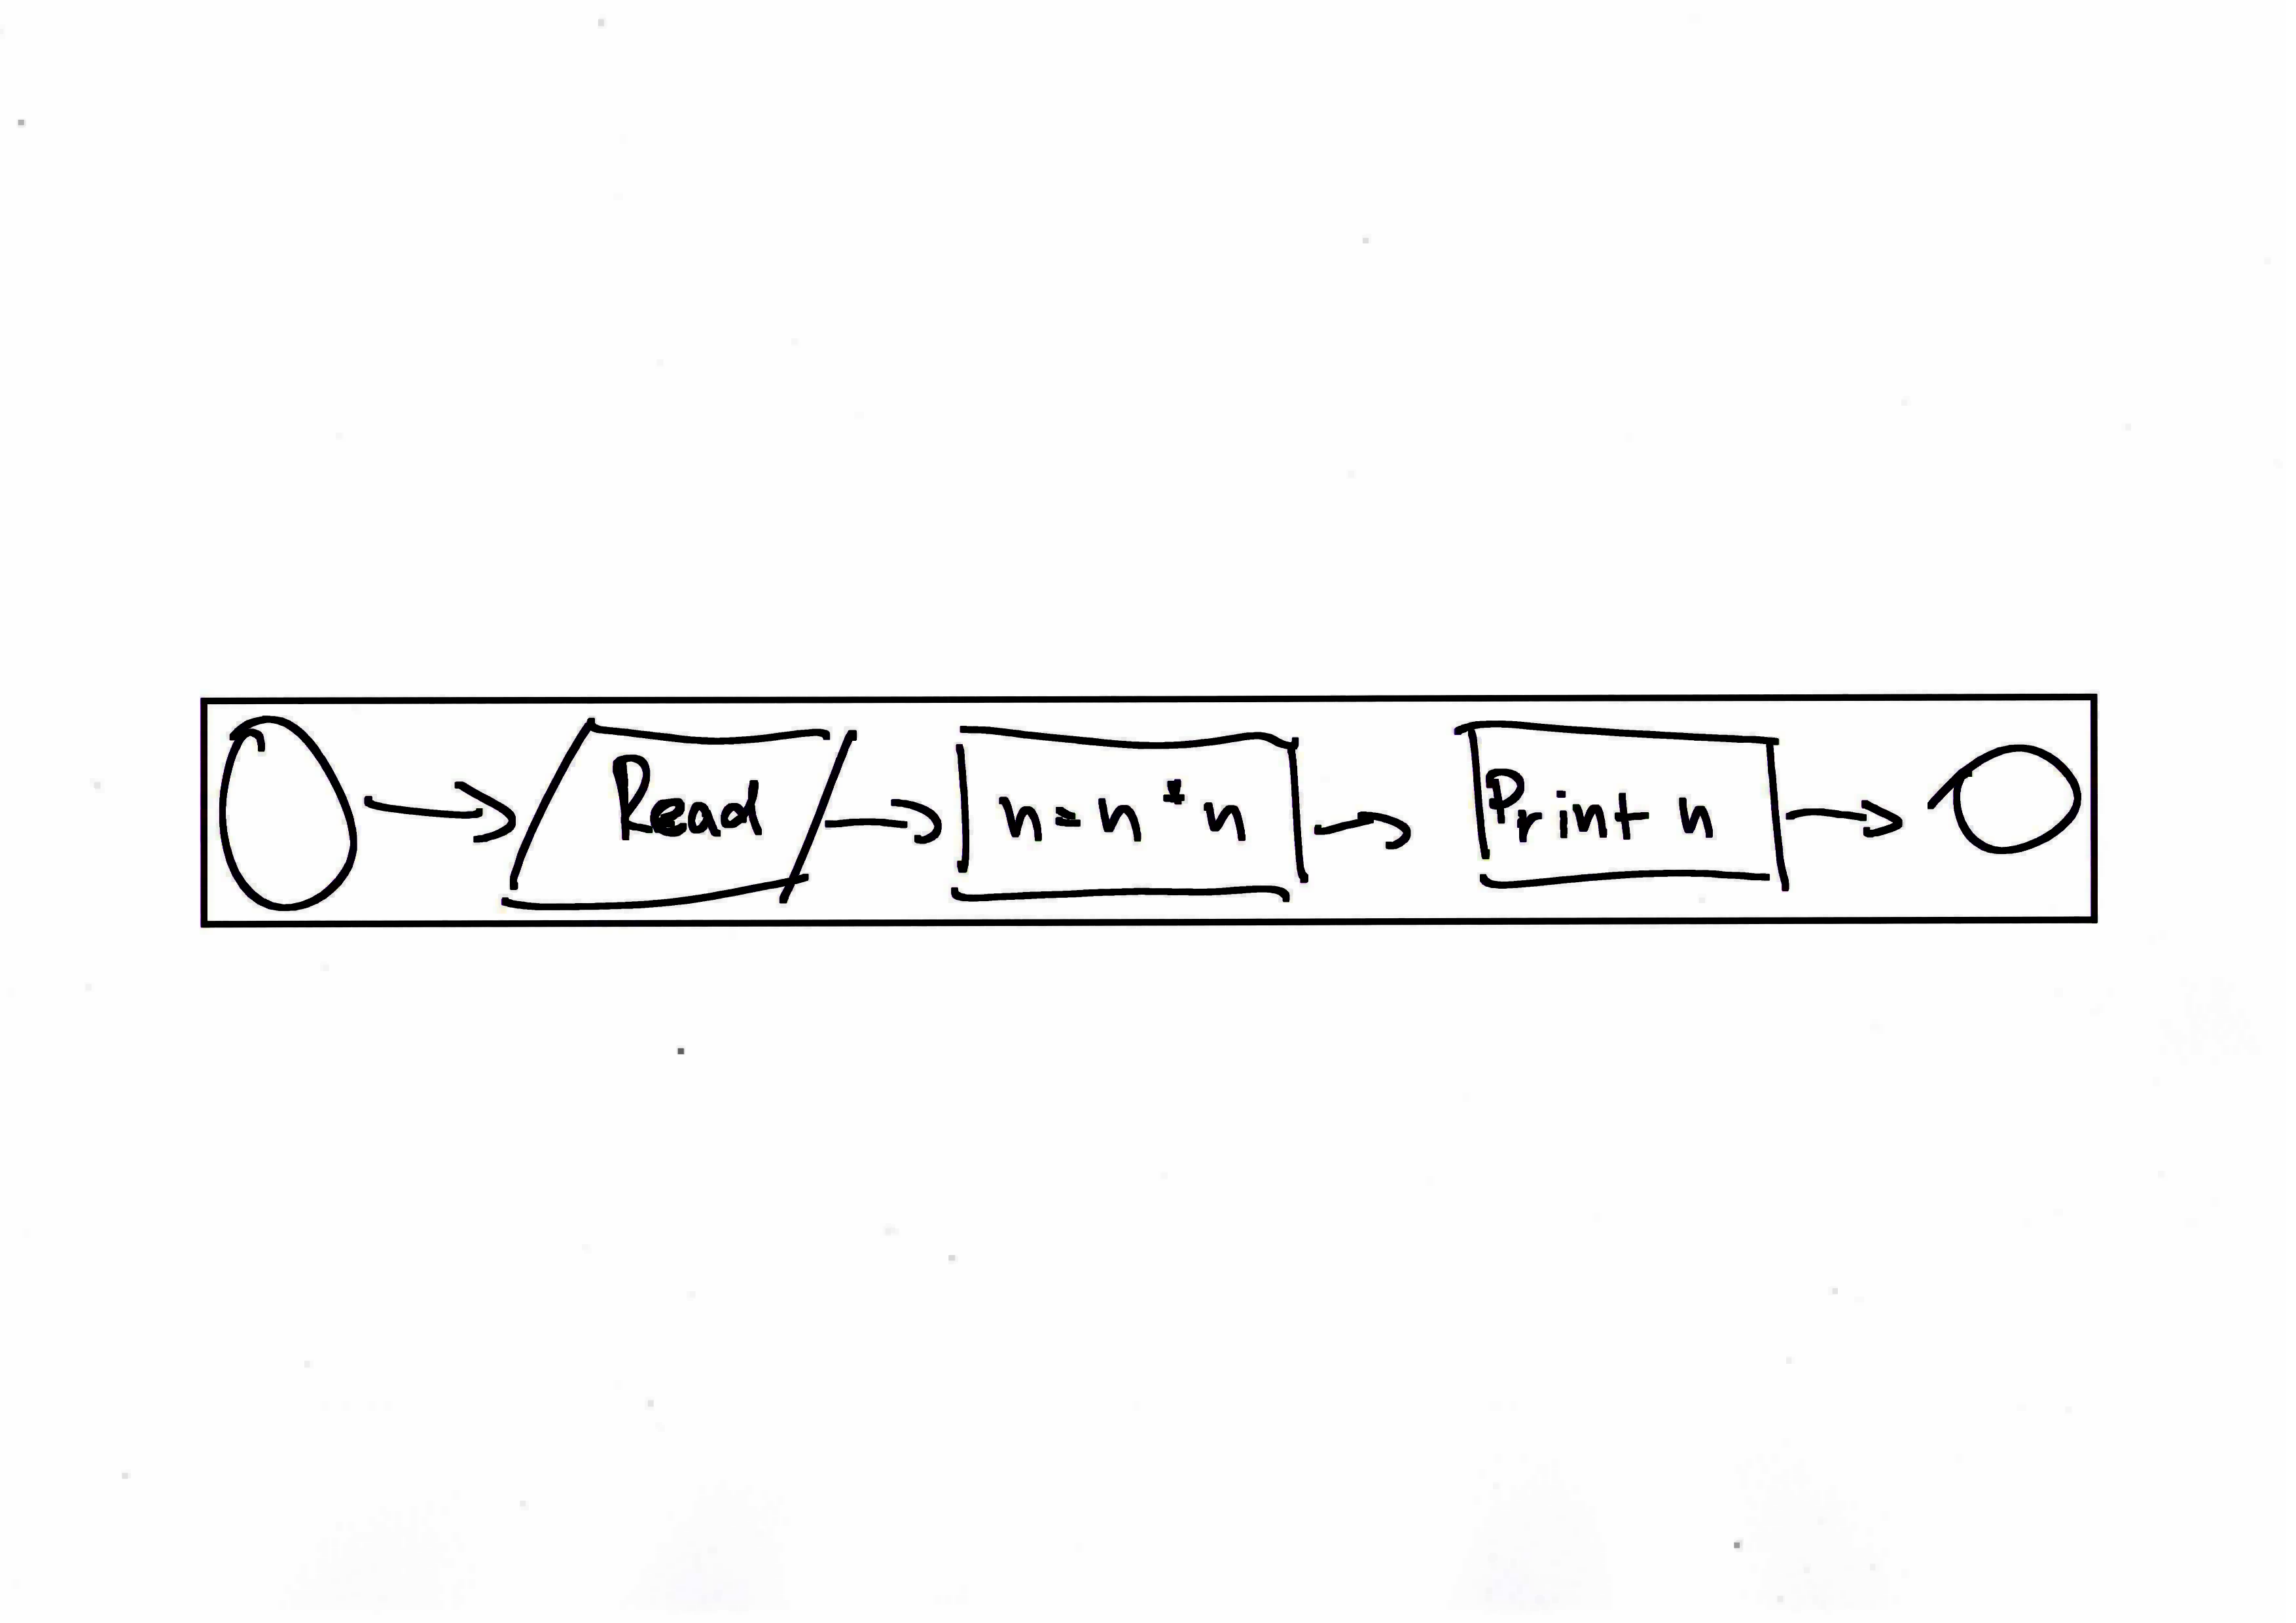 Read
n = n * n
Print n